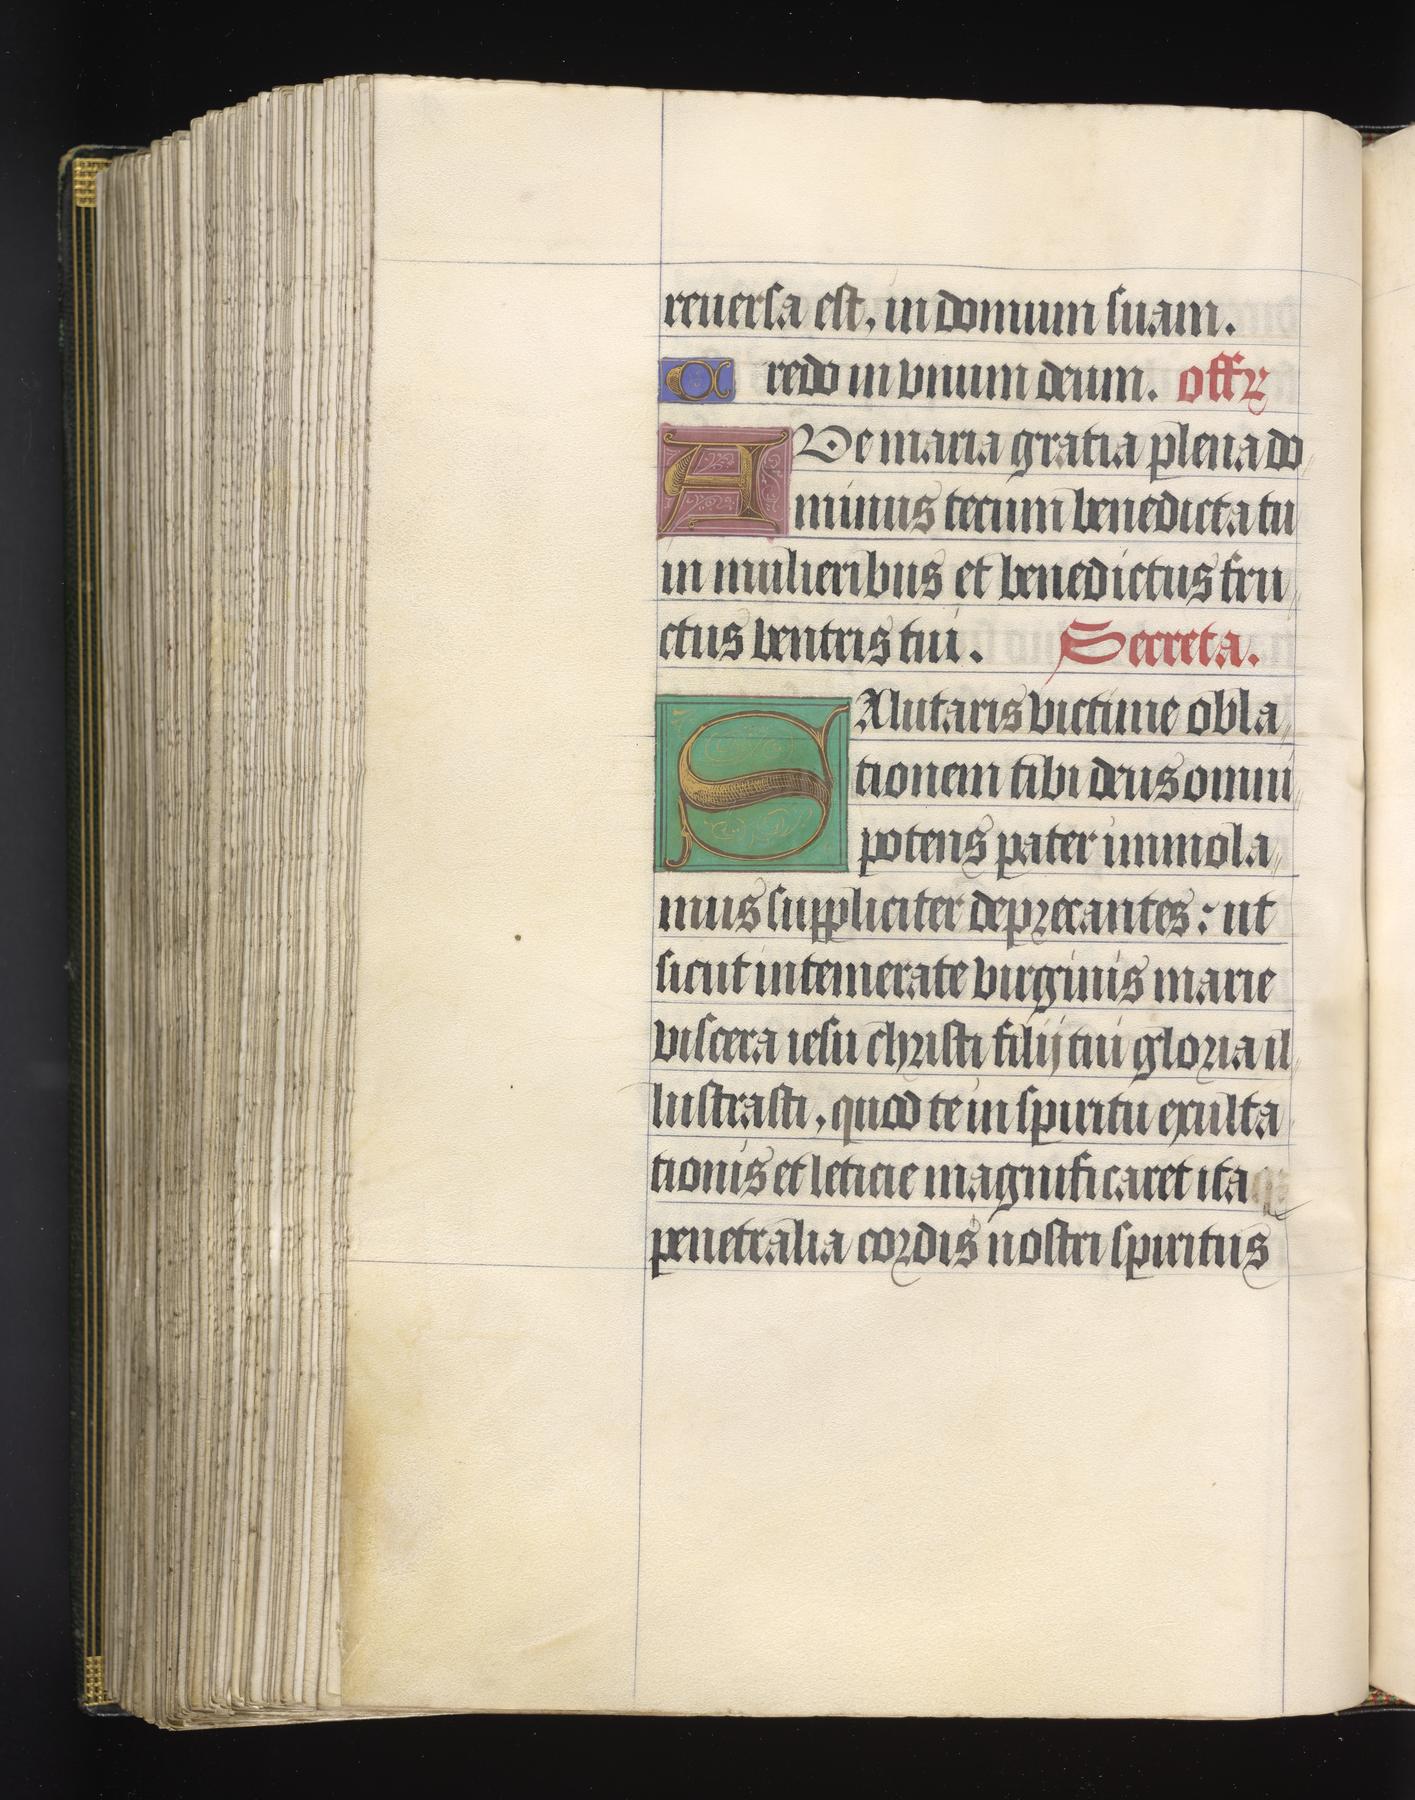 reuersa est, in domum suam.
Credo in vnum deum. offr
AVe maria gratia plena do
minus tecum benedicta tu
in mulieribus et benedictus fru
ctus ventris tui. Secreta.
SAlutaris victime obla
tionem tibi deus omni
potens pater immola
mus suppliciter deprecantes: ut
sicut intemerate virginis marie
viscera iesu christi filij tui gloria il
lustrasti, quod te in spiritu exulta
tionis et leticie magnificaret ita
penetralia cordis nostri spiritus